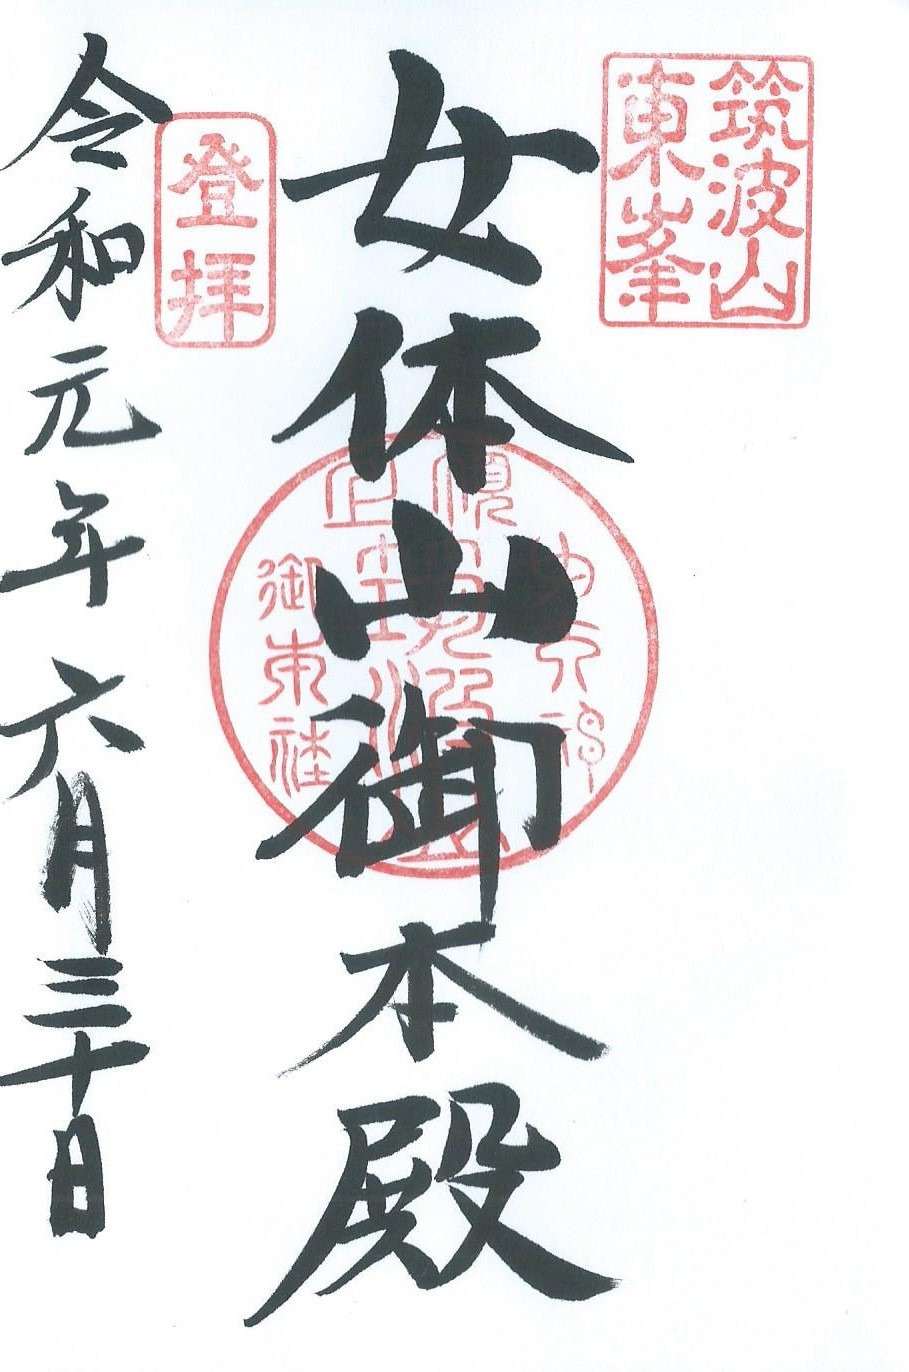 筑波山
東峯
女体山御本殿
登拝
令和元年六月三十日
御本社